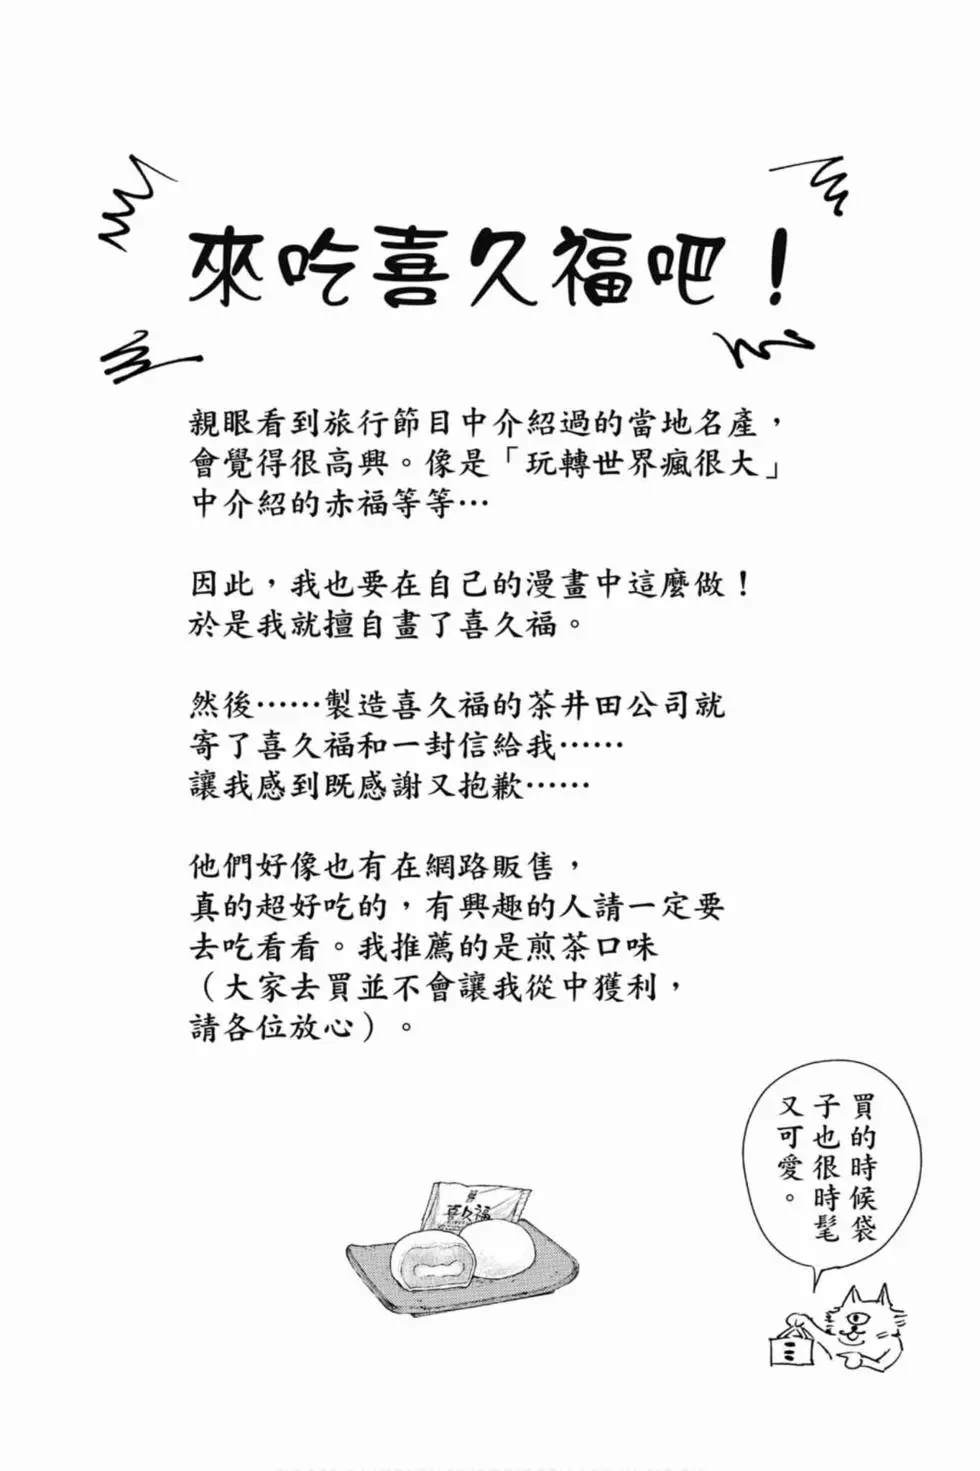 來吃喜久福吧！
親眼看到旅行節目中介紹過的當地名產，
會覺得很高興。像是「玩轉世界瘋很大」
中介紹的赤福等等…
因此，我也要在自己的漫畫中這麼做！
於是我就擅自畫了喜久福。
然後……製造喜久福的茶井田公司就
寄了喜久福和一封信給我……
讓我感到既感謝又抱歉……
他們好像也有在網路販售，
真的超好吃的，有興趣的人請一定要
去吃看看。我推薦的是煎茶口味
（大家去買並不會讓我從中獲利，
請各位放心）。
買的時候袋
子也很時髦
又可愛。
喜久福